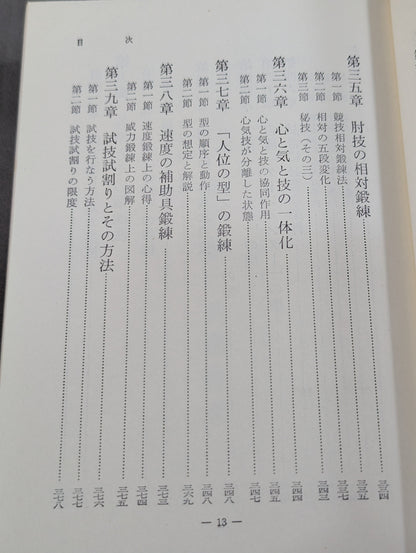 目次
第三五章 肘技の相対鍛練……三三四
第一節 競技相対鍛練法……三三五
第二節 相対の五段変化……三三七
第三節 秘技(その三)……三四三
第三六章 心と気と技の一体化……三四四
第一節 心と気と技の協同作用……三四四
第二節 心気技が分離した状態……三四七
第三七章 「人位の型」の鍛練……三四八
第一節 型の順序と動作……三四八
第二節 型の想定と解説……三六九
第三八章 速度の補助具鍛練……三七三
第一節 速度鍛練上の心得……三七四
第二節 威力鍛練上の図解……三七五
第三九章 試技試割りとその方法……三七六
第一節 試技を行なう方法……三七七
第二節 試技試割りの限度……三七八
— 13 —